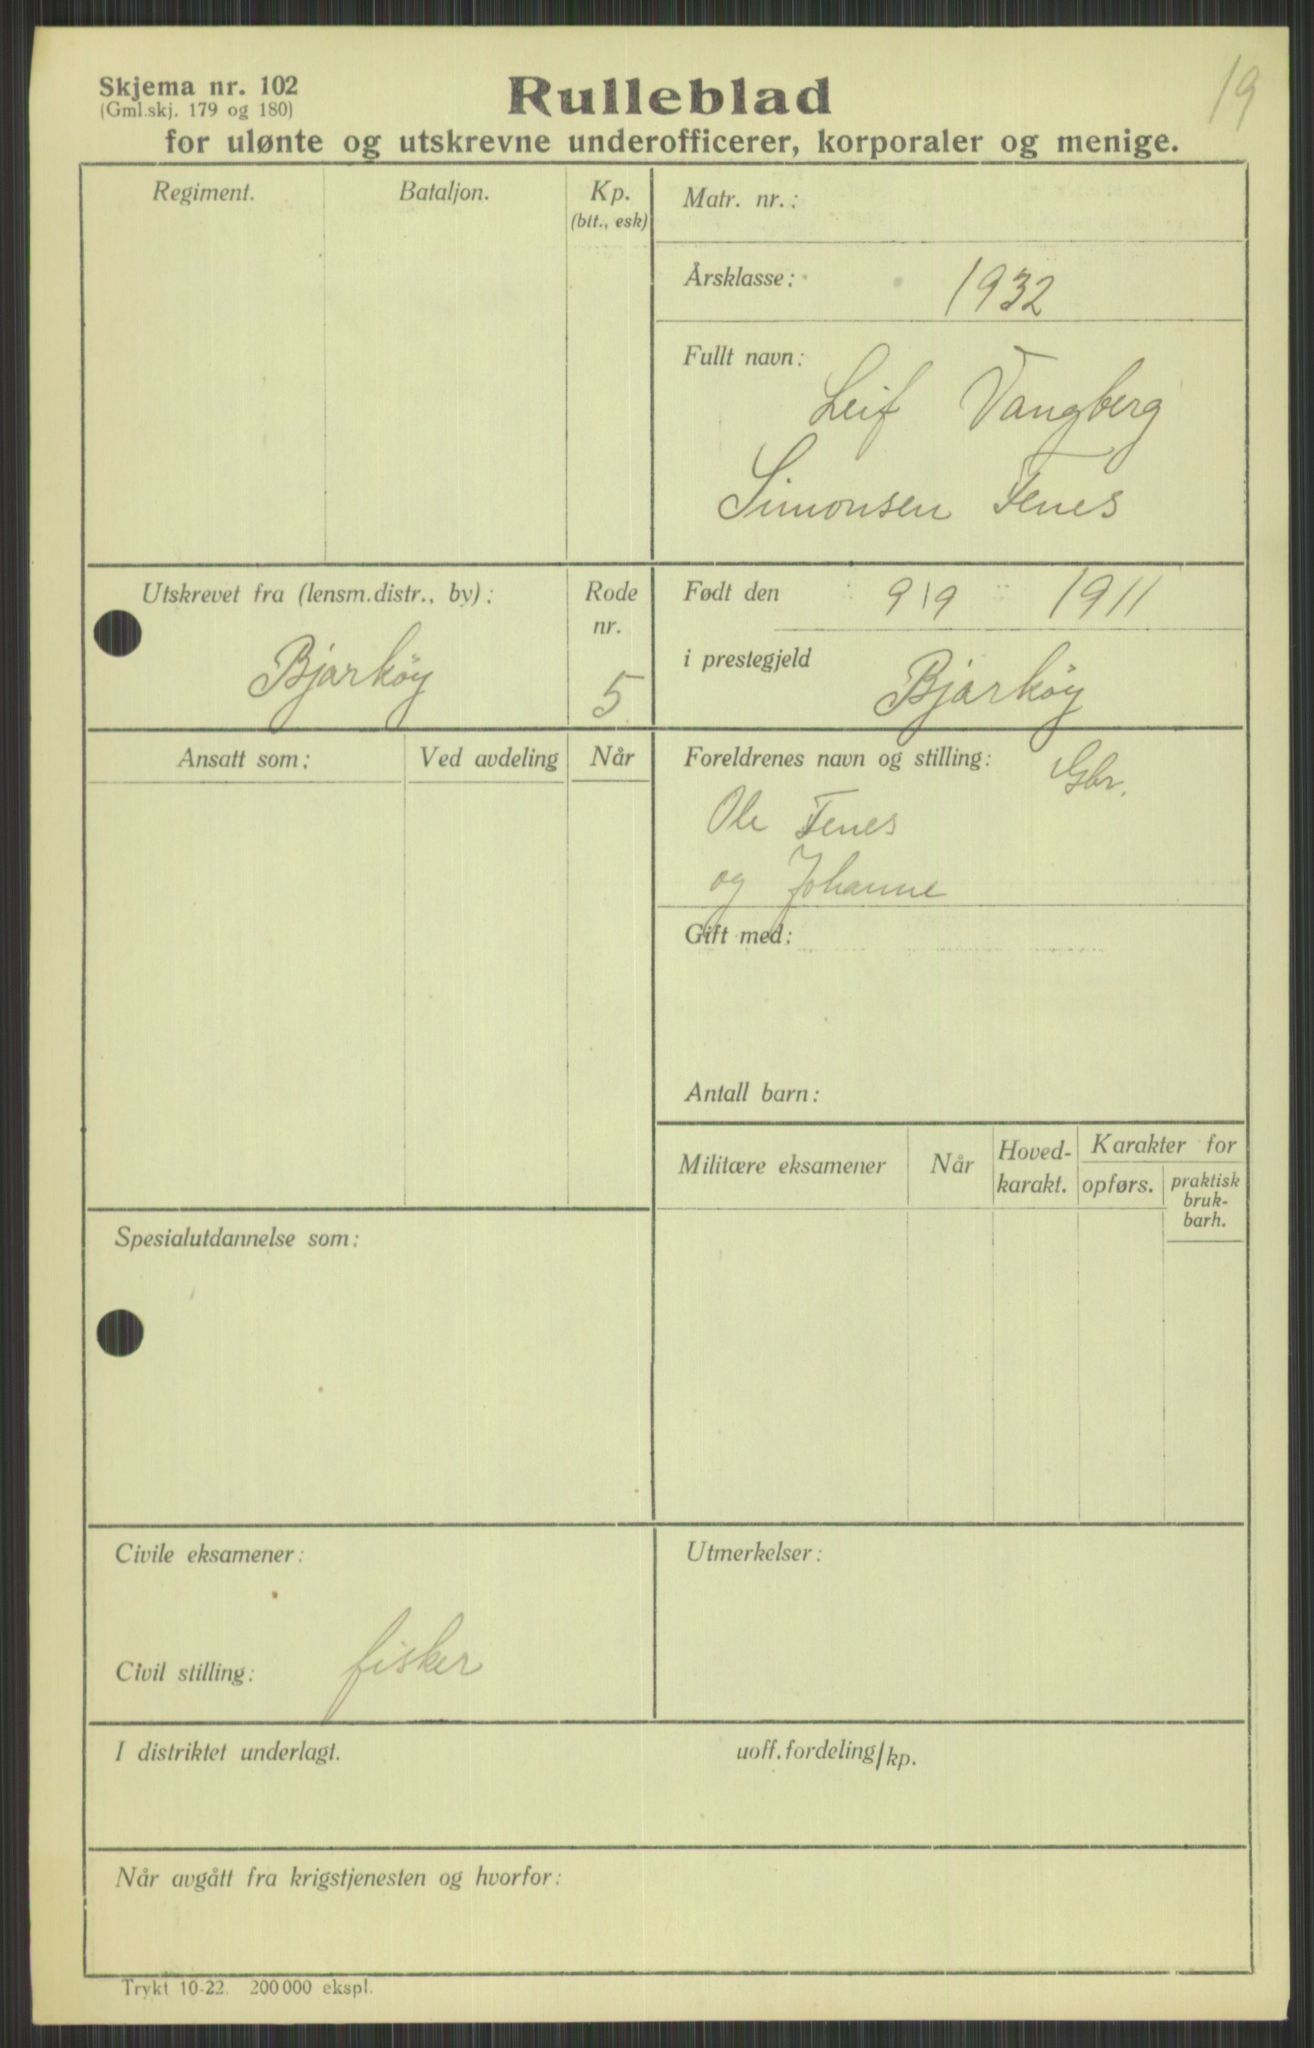 19
Skjema nr. 102
(Gml.skj. 179 og 180)
Rulleblad
for ulønte og utskrevne underofficerer, korporaler og menige.
Regiment.
Bataljon.
Kp.
(btt., esk)
Matr. nr.:
Årsklasse: 1932
Fullt navn:
Leif Vangberg
Simonsen Fenes
Utskrevet fra (lensm.distr., by):
Bjarköy
Rode
nr.
5
Født den 9/9 1911
i prestegjeld Bjarköy
Ansatt som:
Ved avdeling
Når
Foreldrenes navn og stilling: Gbr.
Ole Fenes
og Johanne
Gift med:
Antall barn:
Militære eksamener
Når
Hoved-
karakt.
Karakter for
opførs.
praktisk
bruk-
barh.
Spesialutdannelse som:
Civile eksamener:
Civil stilling: fisker
Utmerkelser:
I distriktet underlagt.
uoff.fordeling/kp.
Når avgått fra krigstjenesten og hvorfor:
Trykt 10-22. 200000 ekspl.